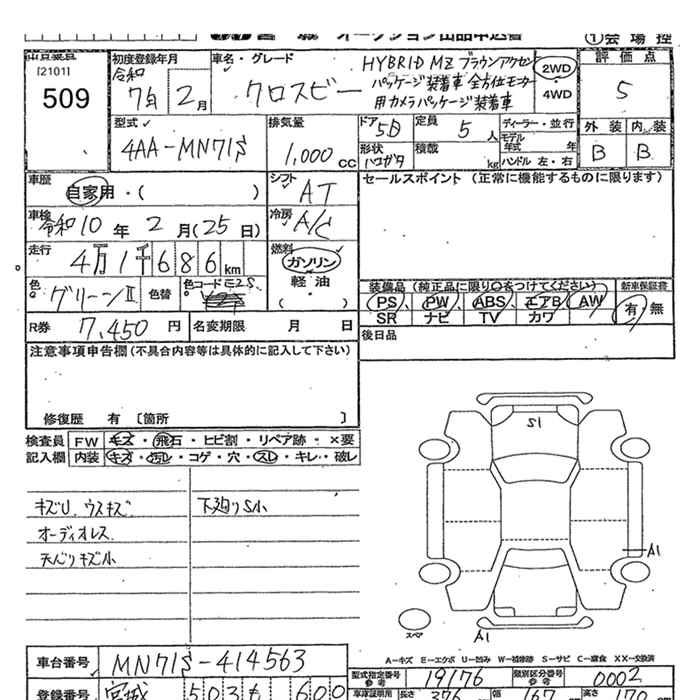 オークション出品申込書
①会場控
出品番号
[2101]
509
初度登録年月
令和
7年 2月
車名・グレード
クロスビー
HYBRID MZ ブラウンアクセン
パッケージ装着車 全方位モニター
用カメラパッケージ装着車
2WD
4WD
評価点
5
型式
4AA-MN71S
排気量
1,000 cc
ドア 5D
形状 ハコガタ
定員 5人
積載 kg
ディーラー・並行
モデル年式 年
ハンドル 左・右
外装 内装
B B
車歴
自家用・( )
シフト
AT
セールスポイント (正常に機能するものに限ります)
車検
令和10年 2月(25日)
冷房
A/C
走行
4万1千686km
燃料
ガソリン
軽油
( )
色
グリーンⅡ
色替
色コード
装備品 (純正品に限り○をつけてください)
新車保証書
PS PW ABS エアB AW
SR ナビ TV カワ
有・無
R券 7,450円
名変期限 月 日
後日品
注意事項申告欄 (不具合内容等は具体的に記入して下さい)
修復歴 有 〔箇所 〕
検査員 FW キズ・飛石・ヒビ割・リペア跡・×要
記入欄 内装 キズ・汚れ・コゲ・穴・スレ・キレ・破レ
キズU ウスキズ
下廻りS小
オーディオレス
天バリキズ小
S1
A1
A1
スペア
A-キズ E-エクボ U-凹み W-補修跡 S-サビ C-腐食 XX-交換済
車台番号 MN71S-414563
型式指定番号 参考 19176
類別区分番号 参考 0002
登録番号 宮城 503 600
車庫証明用 参考 長さ 376cm 幅 167cm 高さ 170cm